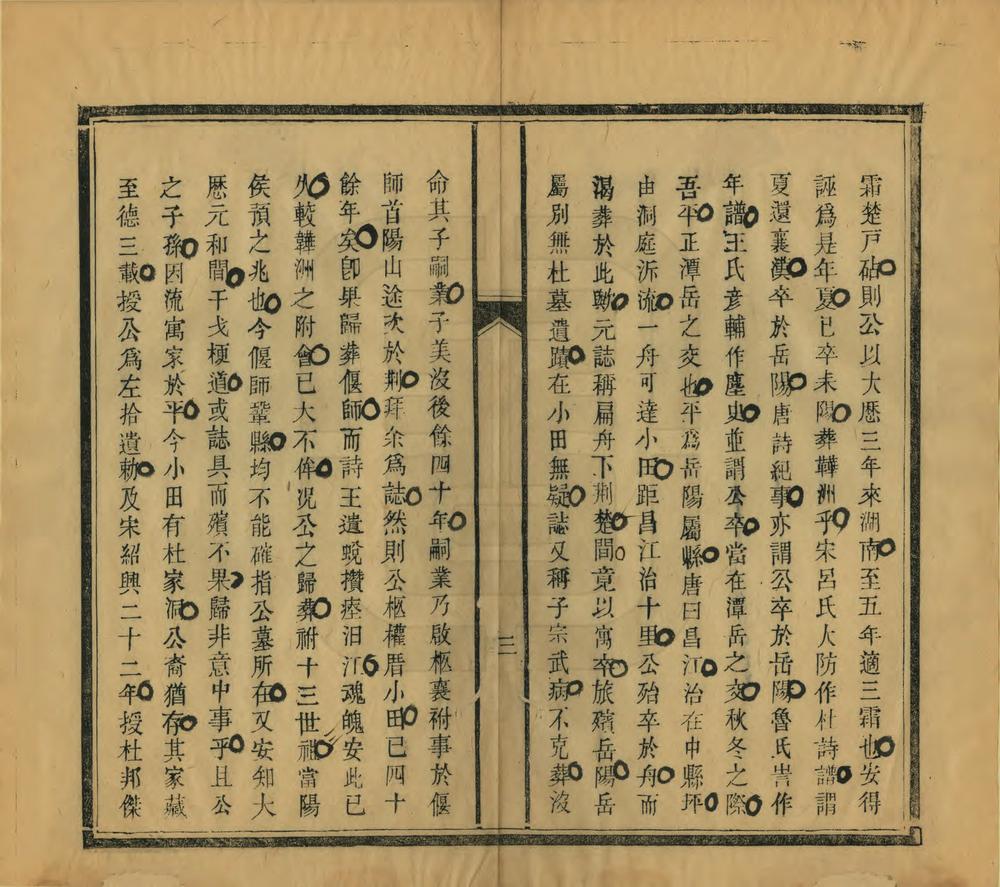 霜楚戸砧則公以大厯三年來湖南至五年適三霜也安得
誣爲是年夏已卒耒陽葬韡洲乎宋呂氏大防作杜詩譜謂
夏還襄漢卒於岳陽唐詩紀事亦謂公卒於岳陽魯氏訔作
年譜王氏彦輔作麈史並謂公卒當在潭岳之交秋冬之際
吾平正潭岳之交也平爲岳陽屬縣唐曰昌江治在中縣坪
由洞庭泝流一舟可達小田距昌江治十里公殆卒於舟而
渴葬於此歟元誌稱扁舟下荆楚間竟以寓卒旅殯岳陽岳
屬別無杜墓遺蹟在小田無疑誌又稱子宗武病不克葬沒
三
命其子嗣業子美沒後餘四十年嗣業乃啟柩襄祔事於偃
師首陽山途次於荆拜余爲誌然則公柩權厝小田已四十
餘年矣卽果歸葬偃師而詩王遺蛻攢瘞汨江魂魄安此已
久較韡洲之附會已大不侔况公之歸葬祔十三世祖當陽
侯預之兆也今偃師鞏縣均不能確指公墓所在又安知大
厯元和間干戈梗道或誌具而殯不果歸非意中事乎且公
之子孫因流寓家於平今小田有杜家洞公裔猶存其家藏
至德三載授公爲左拾遺勅及宋紹興二十二年授杜邦傑